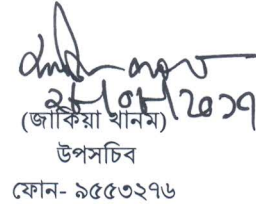 ২৮/০৮/২০১৭
(জাকিয়া খানম)
উপসচিব
ফোন- ৯৫৫৩২৭৬